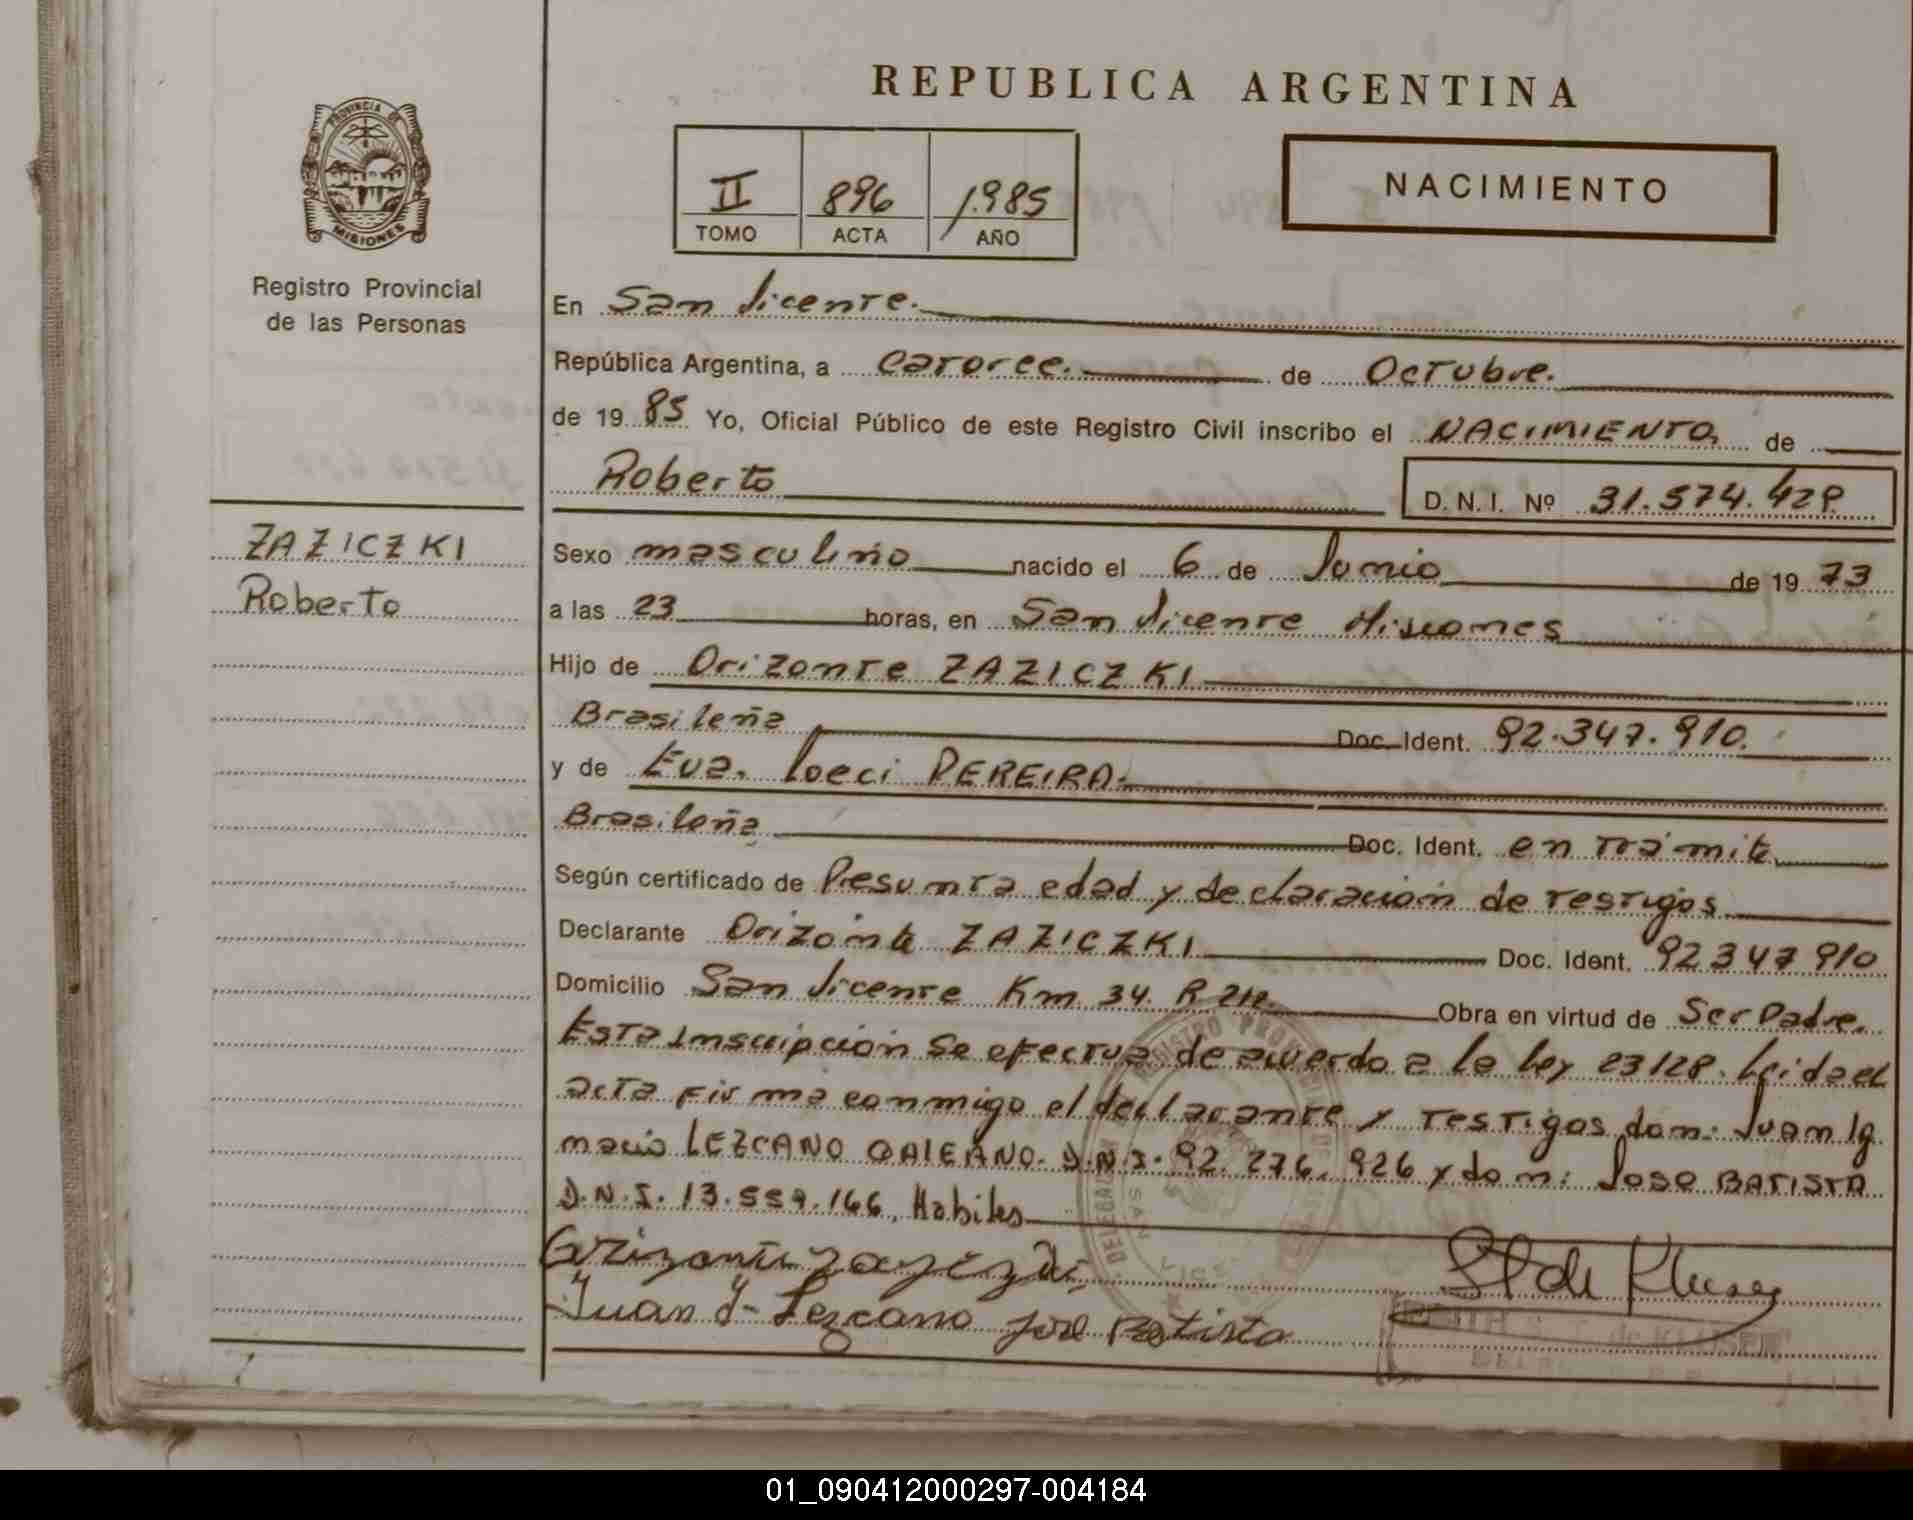 REPUBLICA ARGENTINA
PROVINCIA DE
MISIONES
Registro Provincial
de las Personas
II 896 1985
TOMO ACTA AÑO
NACIMIENTO
En San Vicente.
República Argentina, a Catorce. de Octubre.
de 19 85 Yo, Oficial Público de este Registro Civil inscribo el NACIMIENTO de
Roberto
D. N. I. Nº 31.574.429
ZAZICZKI
Roberto
Sexo masculino nacido el 6 de Junio de 19 73
a las 23 horas, en San Vicente Misiones
Hijo de Orizonte ZAZICZKI
Brasileña Doc. Ident. 92.347.910.
y de Eva. Loeci PEREIRA.
Brasileña Doc. Ident. en trámite
Según certificado de Presunta edad y declaración de testigos
Declarante Orizonte ZAZICZKI Doc. Ident. 92347910
Domicilio San Vicente Km 34. R 212. Obra en virtud de Ser Padre.
Esta inscripción se efectua de acuerdo a la ley 23128. Leida el
acta firma conmigo el declarante y testigos don: Juan Ig
nacio LEZCANO GALEANO. D.N.I. 92.276.926 y don: Jose BATISTA
D.N.I. 13.559.166. Habiles
Orizonte Zaziczki
Juan I. Lezcano José Batista
de Kluser
REGISTRO PROVINCIAL DE
DELEGACION
SAN VICENTE
EDITH de KLUSER
01_090412000297-004184